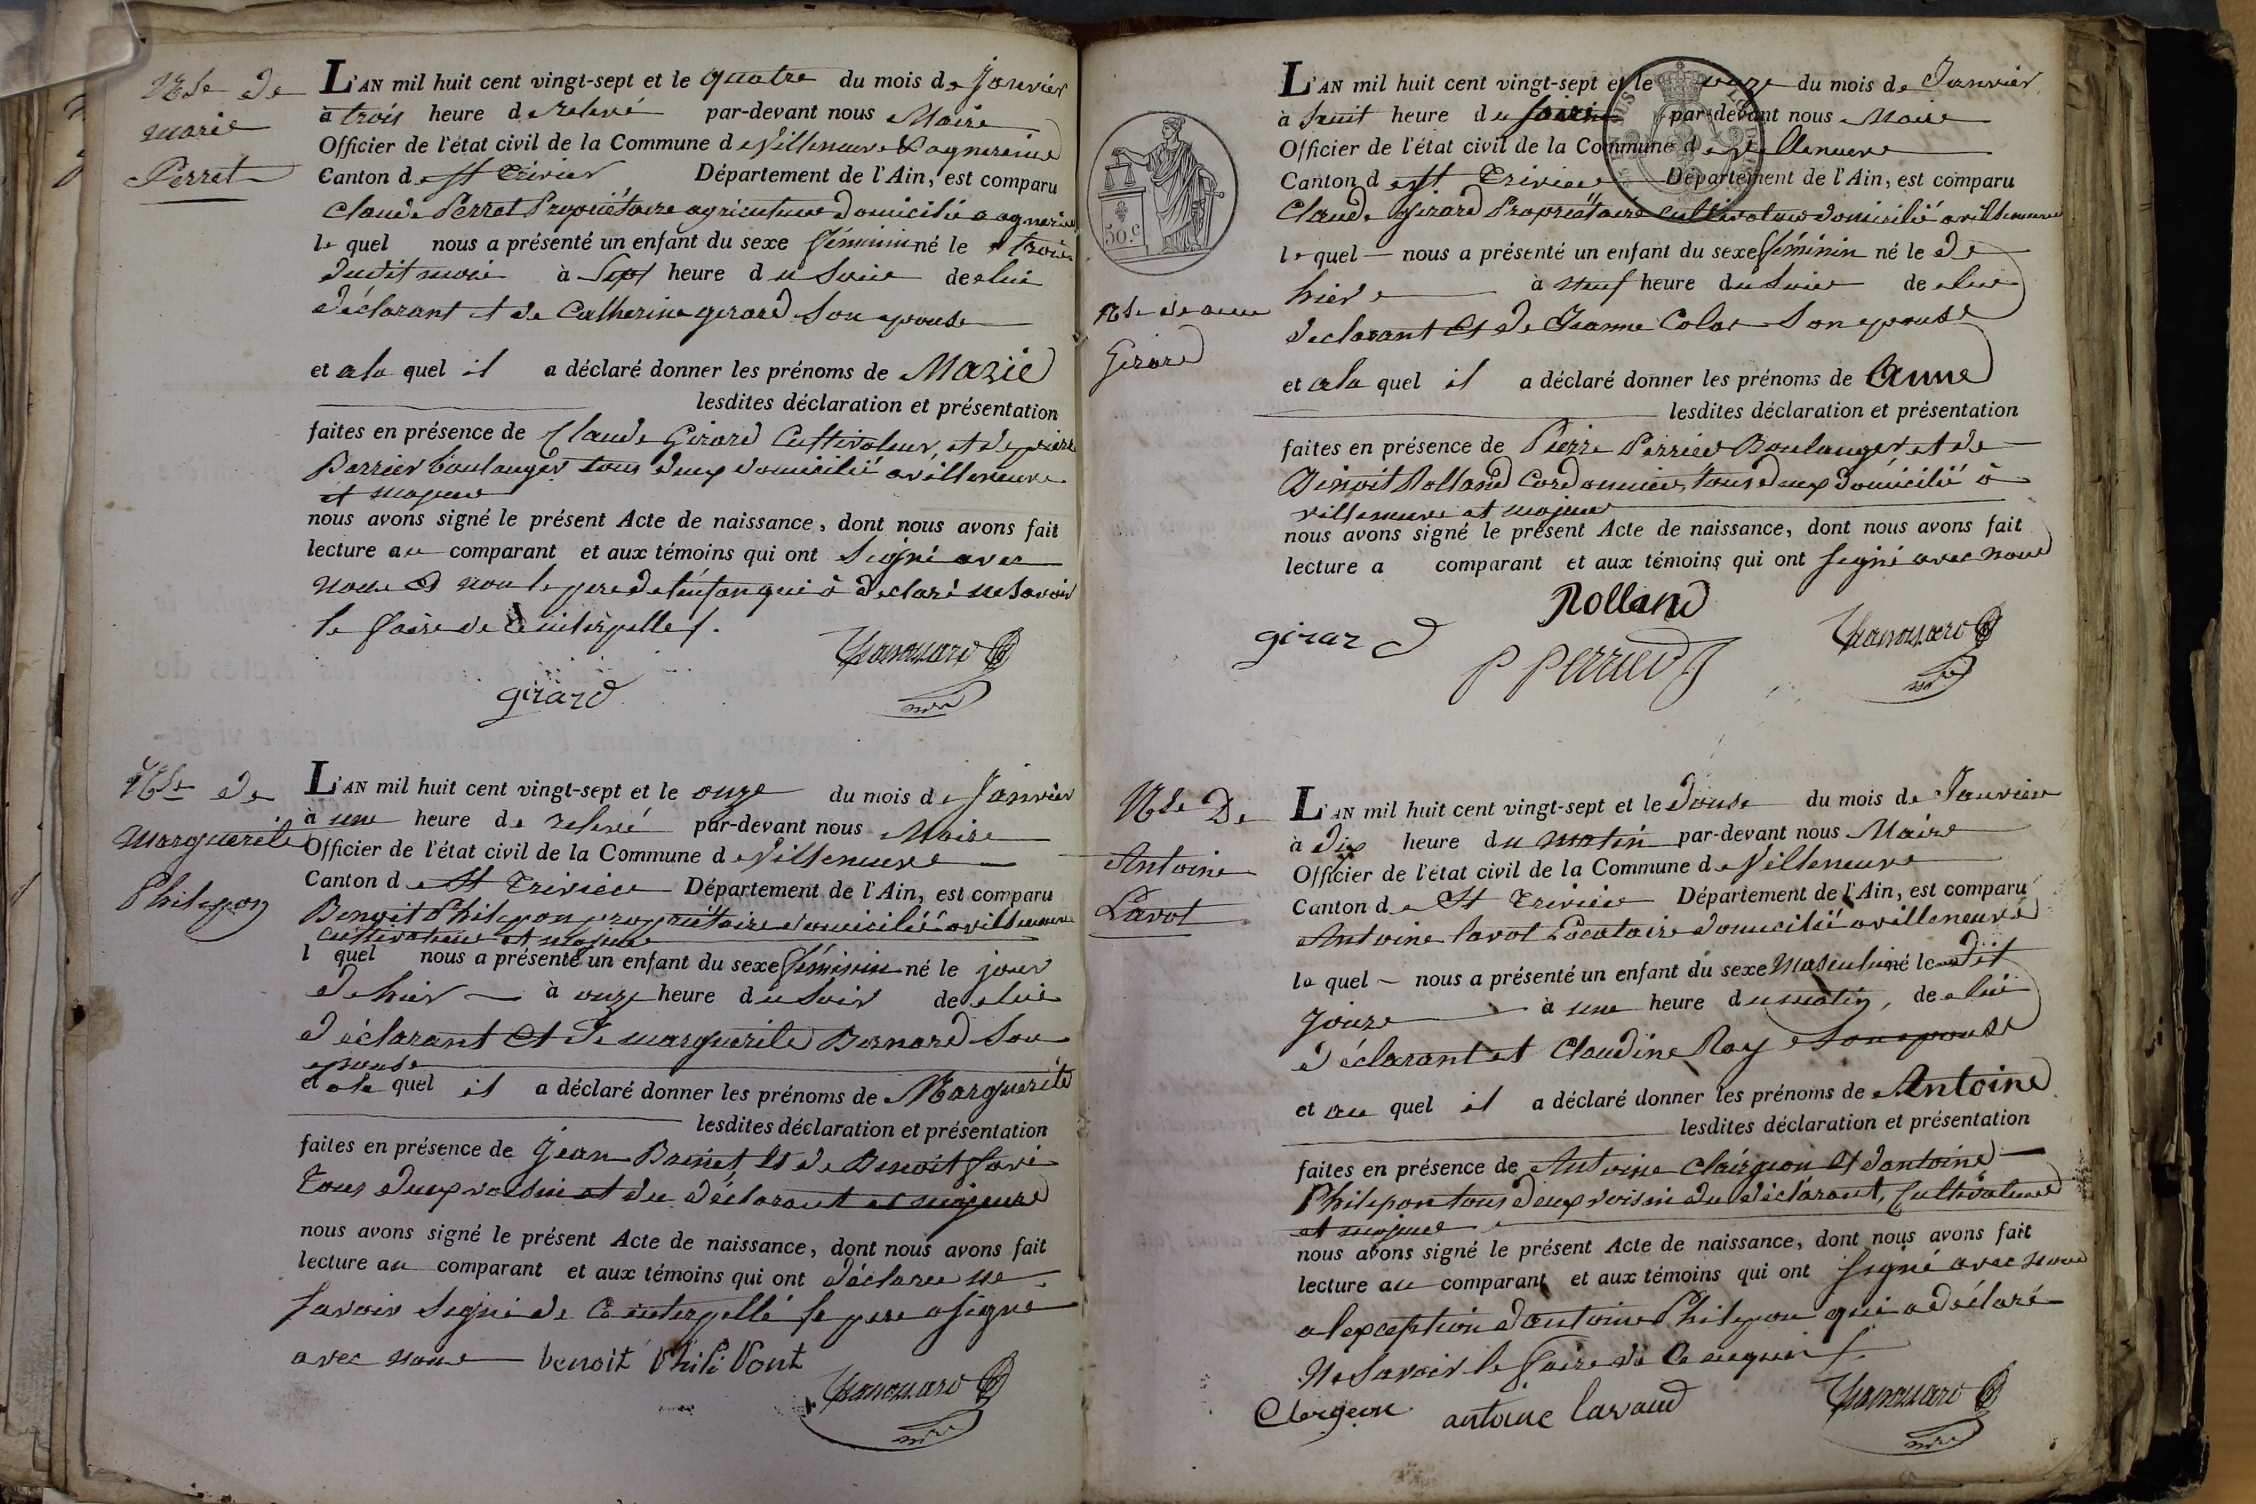 Nce de
marie
Perret
L'AN mil huit cent vingt-sept et le quatre du mois de Janvier
à trois heure de relevé par-devant nous Maire
Officier de l'état civil de la Commune de Villeneuve & agnereins
Canton de St Trivier Département de l'Ain, est comparu
Claude Perret Propriétaire agriculteur domicilié a agnereins
le quel nous a présenté un enfant du sexe féminin né le trois
dudit mois à Sept heure du Soir de lui
déclarant et de Catherine gerard Son epouse
et a la quel il a déclaré donner les prénoms de Marie
lesdites déclaration et présentation
faites en présence de Claude Girard Cultivateur, et de pierre
Perrier boulanger tous deux domicilié a villeneuve
et majeur
nous avons signé le présent Acte de naissance, dont nous avons fait
lecture au comparant et aux témoins qui ont Signé avec
nous et non le pere de l'enfan qui à declaré ne Savoir
le faire de ce interpellé.
girard
Nce de
Marguerite
Philipon
L'AN mil huit cent vingt-sept et le onze du mois de Janvier
à une heure de relevé par-devant nous Maire
Officier de l'état civil de la Commune de Villeneuve
Canton de St Trivier Département de l'Ain, est comparu
Benoit Philipon propriétaire domicilié a villeneuve
Cultivateur et majeur
l quel nous a présenté un enfant du sexe féminin né le jour
de hier à onze heure du Soir de lui
déclarant et de marguerite Bernard Son
epouse
et a la quel il a déclaré donner les prénoms de Marguerite
lesdites déclaration et présentation
faites en présence de Jean Brunet et de Benoit
Tous deux voisin et du déclarant et majeure
nous avons signé le présent Acte de naissance, dont nous avons fait
lecture au comparant et aux témoins qui ont déclaree ne
Savoir Signé de Ce interpellé le pere a signe
avec nous benoit Phili Pont
50 c
Nce de anne
Girard
L'AN mil huit cent vingt-sept et le onze du mois de Janvier
à huit heure du soir par-devant nous Maire
Officier de l'état civil de la Commune de Villeneuve
Canton de St Trivier Département de l'Ain, est comparu
Claude Girard Propriétaire cultivateur domicilié a villeneuve
le quel nous a présenté un enfant du sexe féminin né le de
hier à neuf heure du Soir de lui
declarant et de Jeanne Colas Son epouse
et a la quel il a déclaré donner les prénoms de Anne
lesdites déclaration et présentation
faites en présence de Pierre Perrier Boulanger et de
Benoit Rolland Cordonnier, tous deux domicilié à
villeneuve et majeur
nous avons signé le présent Acte de naissance, dont nous avons fait
lecture a comparant et aux témoins qui ont signé avec nous
Rolland
girard
P Perrier
Nce De
Antoine
Lavot
L'AN mil huit cent vingt-sept et le douse du mois de Janvier
à dix heure du matin par-devant nous Maire
Officier de l'état civil de la Commune de Villeneuve
Canton de St Trivier Département de l'Ain, est comparu
Antoine lavot Locataire domicilié a villeneuve
le quel nous a présenté un enfant du sexe Masculin né le dit
jour à une heure du matin, de lui
déclarant et Claudine Ray Son epouse
et au quel il a déclaré donner les prénoms de Antoine
lesdites déclaration et présentation
faites en présence de Antoine Clairgeon et dantoine
Philipon tous deux voisin du déclarant, Cultivateur
et majeur
nous avons signé le présent Acte de naissance, dont nous avons fait
lecture au comparant et aux témoins qui ont signé avec nous
a lexception dantoine Philipon qui a déclaré
Ne Savoir le faire de Ce requis
Clergeon antoine lavaud